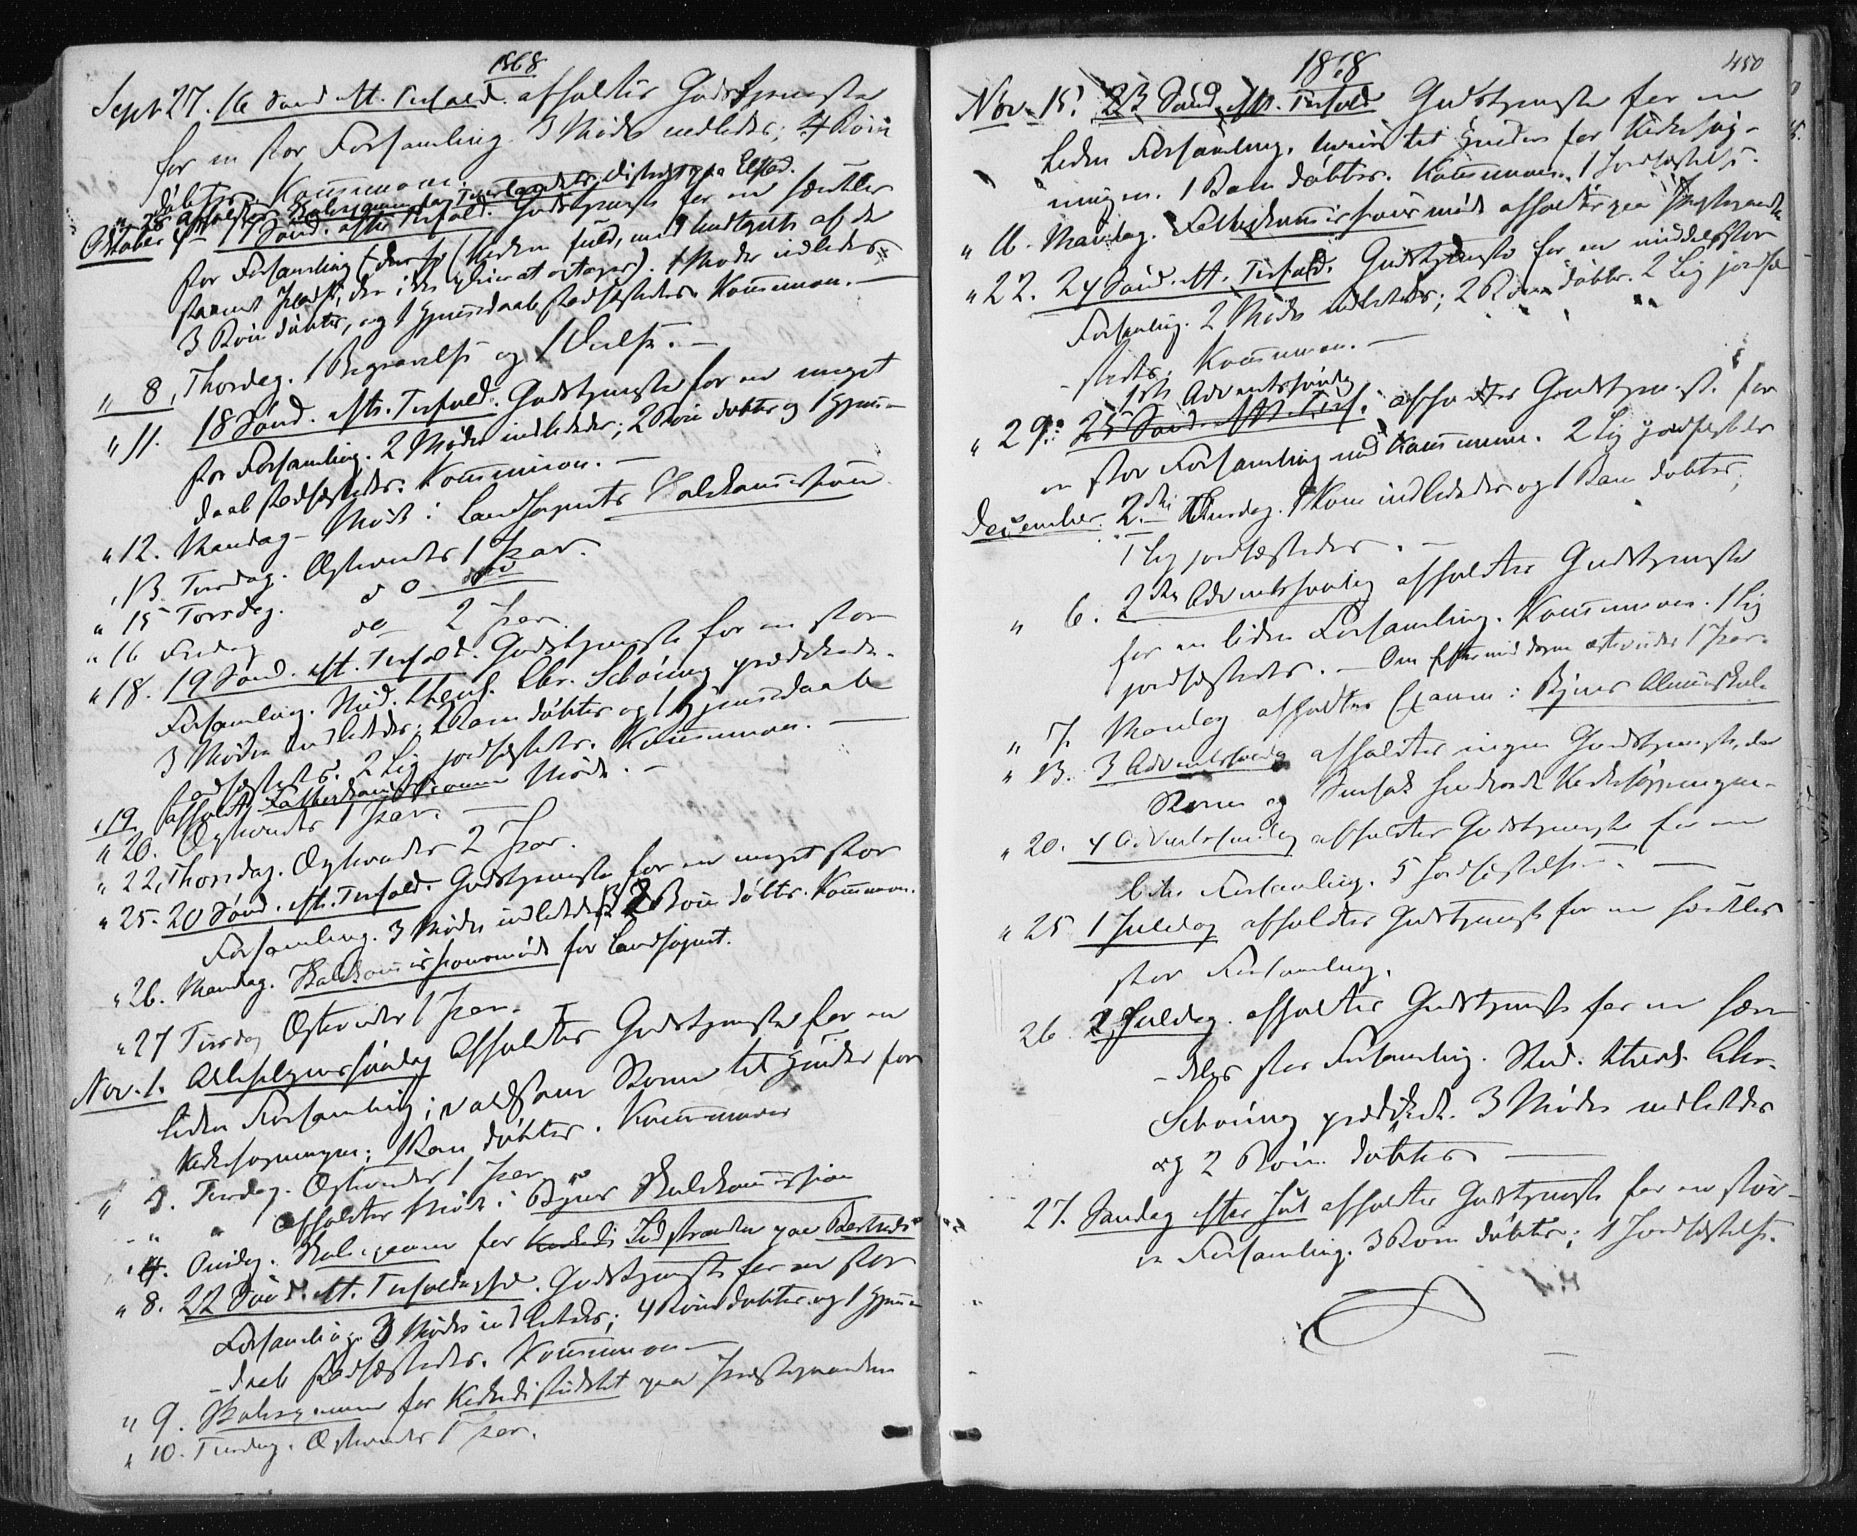 1868
Sept 27. 16 Sønd. eft. Trefold. afholdtes Gudstjeneste
for en stor Forsamling. 3 Mødre indledet; 4 Børn
døbtes. Kommunion.
" 28 afholdtes Skolexamen for distrikt paa Elstad.
Oktober 4de 17 Sønd. efter Trefold. Gudstjeneste for en særdeles
stor Forsamling (Kirken fuld, med Undtagelse af de
1 Moder indledes
3 Børn døbtes, og 1 Hjemmedaab stadfæstedes. Kommunion. —
" 8, Thorsdag. 1 Begravelse og 1 Vielse. —
" 11. 18 Sønd. efter. Trefold. Gudstjeneste for en meget
stor Forsamling. 2 Mødre indledede; 2 Børn døbtes og 1 Hjemme-
daab stadfæstedes. Kommunion. —
" 12. Mandag - Møde i Landsognets Valekommission
" 13. Tirsdag. Ægteviedes 1 Par.
" 15 Torsdag. do do
" 16 Fredag do 2 Par.
" 18. 19 Sønd. eft. Trefold. Gudstjeneste for en stor
Forsamling. Stud. theol. Chr. Schøning prædikede.
3 Mødre indledet; 2 Børn døbtes og 1 Hjemmedaab
stadfæstedes. 2 Lig jordfæstedes. Kommunion. —
" 19. afholdt Fattigkommissions Møde. —
" 20. Ægteviedes 1 Par. —
" 22, Thorsdag. Ægteviedes 2 Par.
" 25. 20 Sønd. eft. Trefold. Gudstjeneste for en meget stor
Forsamling. 3 Mødre indledet; 2 Børn døbtes. Kommunion.
" 26. Mandag. Skolekommissionsmøde for Landsognet.
" 27 Tirsdag Ægteviedes 1 Par.
Nov. 1. Allehelgenssøndag Afholdtes Gudstjeneste for en
liden Forsamling; voldsom Storm til Hinder for
Kirkesøgningen; 1 Barn døbtes. Kommunion
" 3. Tirsdag. Ægteviedes 1 Par
" " Afholdtes Møde i Byens Skolekommission
" 4. Onsdag. Skolexamen for Lidstranden paa
" 8. 22 Sønd. eft. Trefoldighed. Gudstjeneste for en stor
Forsamling. 3 Mødre indledes; 4 Børn døbtes og 1 Hjemme-
daab stadfæstedes. Kommunion —
" 9. Skolexamen for Kirkedistriktet paa Præstegaarden
" 10. Tirsdag. Ægteviedes 1 Par.
1868
450
Nov. 15. 23 Sønd. eft. Trefold. Gudstjeneste for en
Liden Forsamling, til Hinder for Kirkesøg-
ningen. 1 Barn døbtes. Kommunion. 1 Jordfæstelse.
" 16. Mandag. Fattigkommissionsmøde afholdtes paa Præstegaarden
" 22. 24 Sønd. eft. Trefold. Gudstjeneste for en middelsstor
Forsamling. 2 Mødre indledede; 2 Børn døbtes. 2 Lig jordfæ-
stedes; Kommunion. —
1ste Adventssøndag
" 29. 25 Sønd. eft. Tref. afholdtes Gudstjeneste for
en stor Forsamling med Kommunion. 2 Lig jordfæstedes
December. 2den Onsdag. 1 Kone indlededes og 1 Barn døbtes;
1 Lig jordfæstedes. —
" 6. 2den Adventssøndag afholdtes Gudstjeneste
for en liden Forsamling. Kommunion. 1 Lig
jordfæstedes. — Om Eftermiddagen ægteviedes 1 Par.
" 7. Mandag afholdtes Examen i Byens Almueskole
" 13. 3 Adventssøndag afholdtes ingen Gudstjeneste, da
Storm og Snefok hindrede Kirkesøgningen.
" 20. 4 Adventssøndag afholdtes Gudstjeneste for en
liden Forsamling. 5 Jordfæstelser. —
" 25 1 Juledag afholdtes Gudstjeneste for en særdeles
stor Forsamling.
26. 2 Juledag. afholdtes Gudstjeneste for en sær-
deles stor Forsamling. Stud. theol. Chr.
Schøning prædikede. 3 Mødre indledes
og 2 Børn døbtes —
27. Søndag efter Jul afholdtes Gudstjeneste for en stor-
re Forsamling. 3 Børn døbtes; 1 Jordfæstelse.